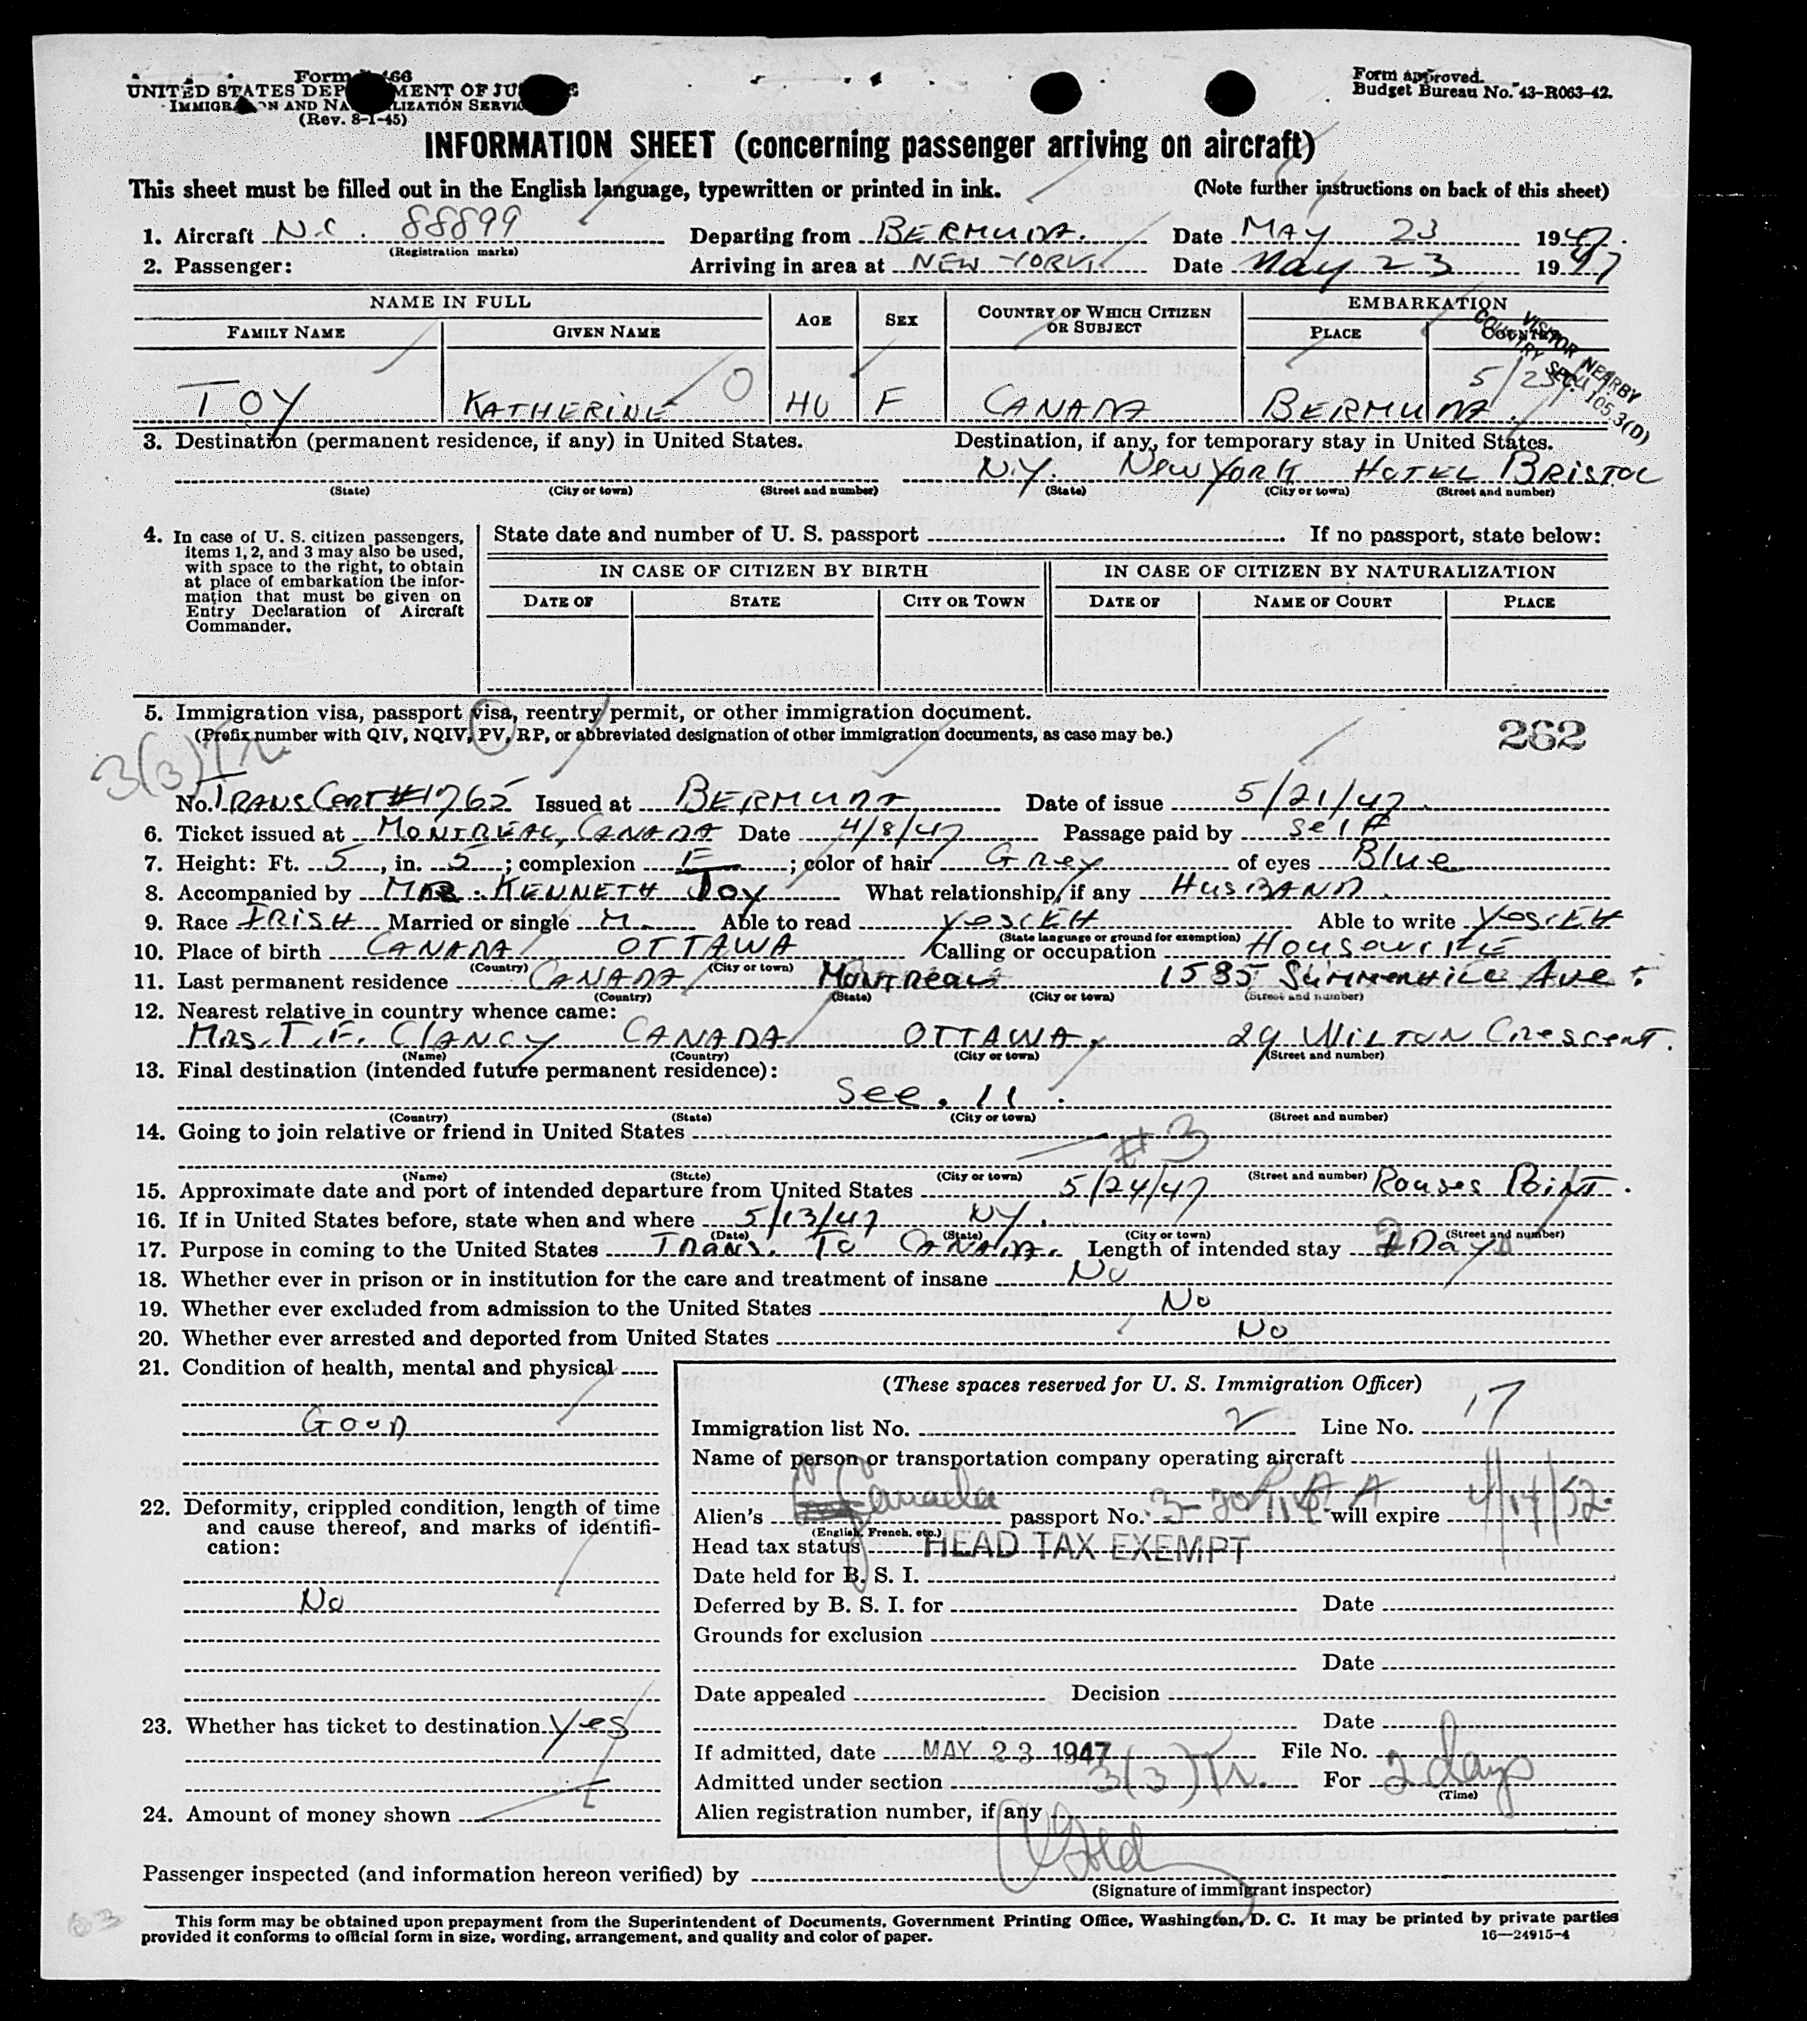 Form 66
UNITED STATES DEP MENT OF JU
IMMIGRA ON AND NA LIZATION SERVIC
(Rev. 8-1-45)
Form approved.
Budget Bureau No. 43-R063-42.
INFORMATION SHEET (concerning passenger arriving on aircraft)
This sheet must be filled out in the English language, typewritten or printed in ink. (Note further instructions on back of this sheet)
1. Aircraft N.C. 88899 Departing from BERMUDA. Date MAY 23 1947.
(Registration marks)
2. Passenger: Arriving in area at NEW YORK. Date May 23 1947
NAME IN FULL AGE SEX COUNTRY OF WHICH CITIZEN OR SUBJECT EMBARKATION
FAMILY NAME GIVEN NAME PLACE COUNTRY
VISITOR NEARBY
COUNTRY SEC. 105.3(D)
5/23/47
TOY KATHERINE O 40 F CANADA BERMUDA.
3. Destination (permanent residence, if any) in United States. Destination, if any, for temporary stay in United States.
N.Y. New York HOTEL BRISTOL
(State) (City or town) (Street and number) (State) (City or town) (Street and number)
4. In case of U. S. citizen passengers, items 1, 2, and 3 may also be used, with space to the right, to obtain at place of embarkation the information that must be given on Entry Declaration of Aircraft Commander.
State date and number of U. S. passport If no passport, state below:
IN CASE OF CITIZEN BY BIRTH IN CASE OF CITIZEN BY NATURALIZATION
DATE OF STATE CITY OR TOWN DATE OF NAME OF COURT PLACE
5. Immigration visa, passport visa, reentry permit, or other immigration document.
(Prefix number with QIV, NQIV, PV, RP, or abbreviated designation of other immigration documents, as case may be.)
262
3(3)Tr.
No. TRANS CERT #1765 Issued at BERMUDA Date of issue 5/21/47.
6. Ticket issued at MONTREAL, CANADA Date 4/8/47 Passage paid by self
7. Height: Ft. 5, in. 5; complexion F; color of hair Grey of eyes Blue
8. Accompanied by MR. KENNETH TOY What relationship, if any HUSBAND.
9. Race IRISH Married or single M. Able to read yes Able to write yes
(State language or ground for exemption)
10. Place of birth CANADA OTTAWA Calling or occupation Housewife
(Country) (City or town)
11. Last permanent residence CANADA MONTREAL 1585 SUMMERHILL Ave.
(Country) (State) (City or town) (Street and number)
12. Nearest relative in country whence came:
MRS. T. F. CLANCY CANADA OTTAWA, 29 WILTON Crescent.
(Name) (Country) (City or town) (Street and number)
13. Final destination (intended future permanent residence):
See. 11.
(Country) (State) (City or town) (Street and number)
14. Going to join relative or friend in United States
# 3
(Name) (State) (City or town) (Street and number)
15. Approximate date and port of intended departure from United States 5/24/47 Rouses Point.
16. If in United States before, state when and where 5/13/47 NY.
(Date) (State) (City or town) (Street and number)
17. Purpose in coming to the United States Trans. To CANADA. Length of intended stay 2 Day
18. Whether ever in prison or in institution for the care and treatment of insane No
19. Whether ever excluded from admission to the United States No
20. Whether ever arrested and deported from United States No
21. Condition of health, mental and physical
GOOD
22. Deformity, crippled condition, length of time and cause thereof, and marks of identification:
No
23. Whether has ticket to destination Yes
24. Amount of money shown
(These spaces reserved for U. S. Immigration Officer)
Immigration list No. 2 Line No. 17
Name of person or transportation company operating aircraft
P A A
Alien's Canada passport No. 3-20 will expire 4/14/52
(English, French, etc.)
Head tax status HEAD TAX EXEMPT
Date held for B. S. I.
Deferred by B. S. I. for Date
Grounds for exclusion
Date
Date appealed Decision
Date
If admitted, date MAY 23 1947 File No.
Admitted under section 3(3)Tr. For 2 days
(Time)
Alien registration number, if any
Passenger inspected (and information hereon verified) by
(Signature of immigrant inspector)
63
This form may be obtained upon prepayment from the Superintendent of Documents, Government Printing Office, Washington, D. C. It may be printed by private parties
provided it conforms to official form in size, wording, arrangement, and quality and color of paper. 16—24915-4